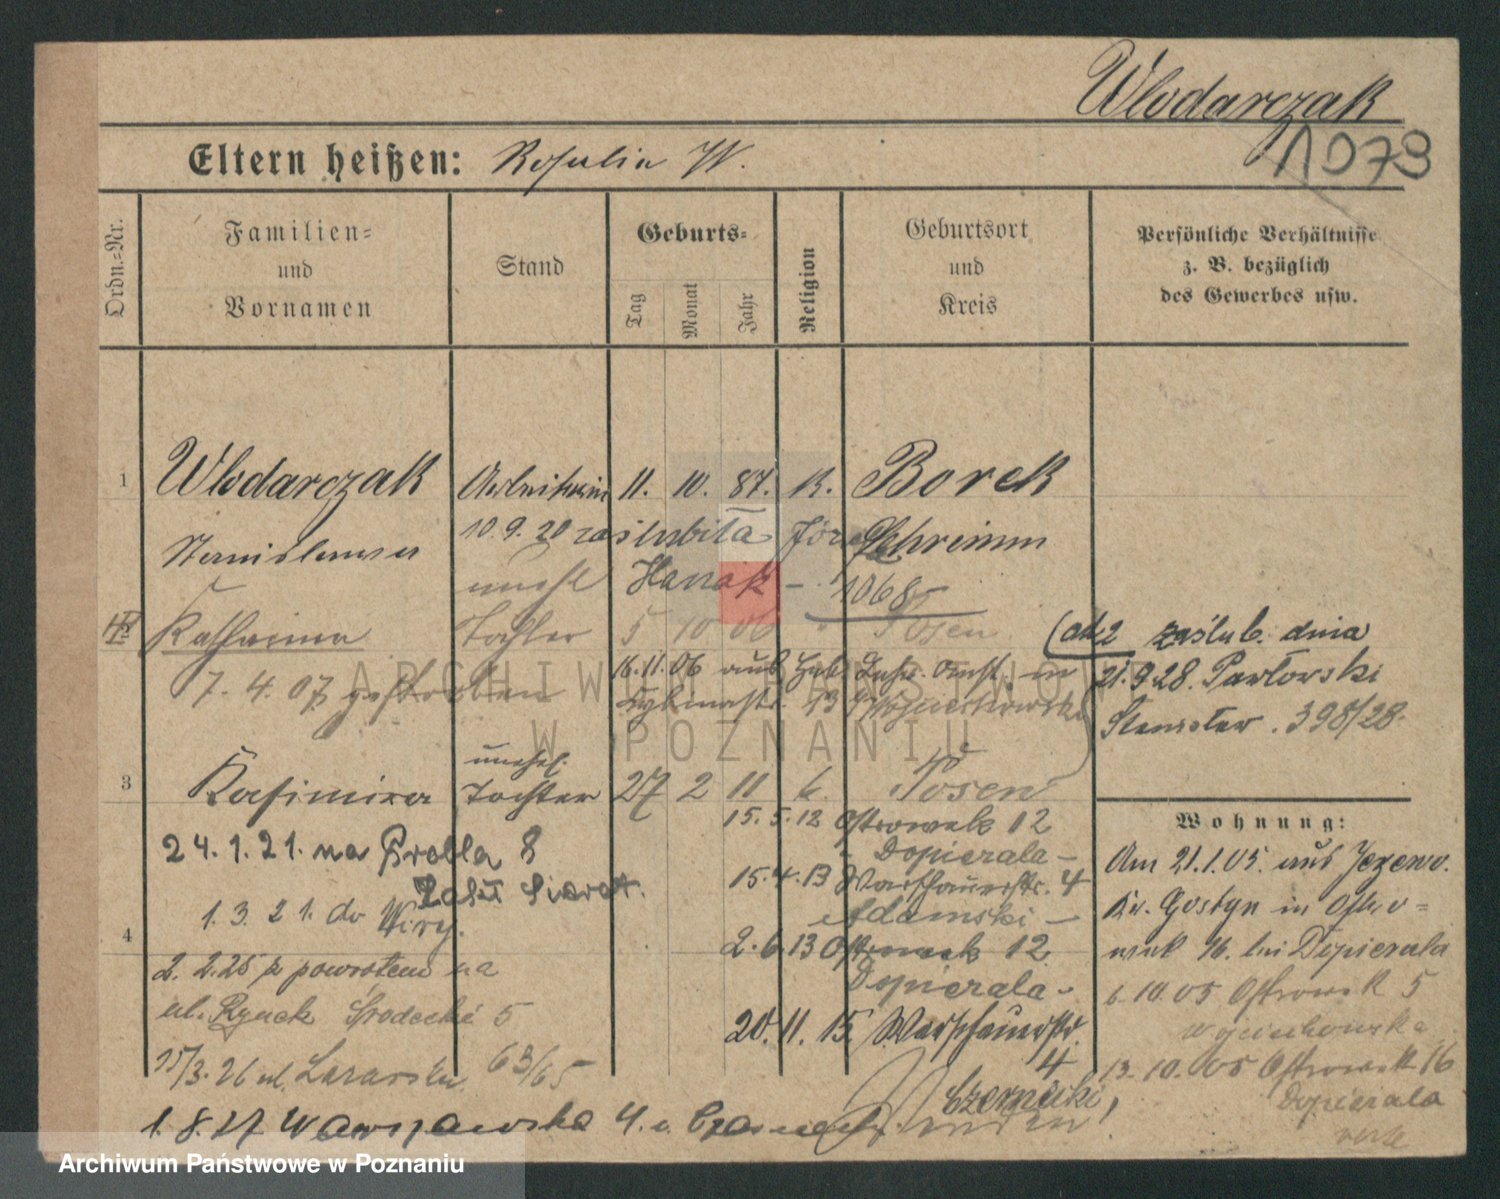 Wlodarczak
1073
Eltern heißen: Rosalia W.
Ordn.-Nr.
Familien-
und
Vornamen
Stand
Geburts-
Tag
Monat
Jahr
Religion
Geburtsort
und
Kreis
Persönliche Verhältnisse
z. B. bezüglich
des Gewerbes usw.
1 Wlodarczak Arbeiterin 11. 10. 87. K. Borek
Stanislawa
10.9.20 zaślubiła Józef
Schrimm
unehl
Hanak - 1068
Katharina Tochter 5 10 06 " Posen
7. 4. 07 gestorben
16.11.06 aus
in
(ad 2 zaślub. dnia
21.9.28. Pawłowski
Stanisław. 398/28.
unehel.
3 Kasimira Tochter 27 2 11 k. Posen
24. 1. 21. na Grobla 8
1. 3. 21. do Wiry.
4
2. 2.25 z powrotem na
ul. Rynek Środecki 5
15/3. 26 ul. Lazarska 63/65
1. 8. 27 Warszawska 4.
15. 5. 12 Ostrowek 12
Dopierala -
15. 4. 13 Warschauerstr. 4
Adamski -
2. 6. 13 Ostrowek 12.
Dopierala -
20. 11. 15. Warschauerstr.
4
Czernicki,
Wohnung:
Am 21.1.05. aus Jezewo.
Kr. Gostyn in Ostro-
wek 16. bei Dopierala
6. 10. 05 Ostrowek 5
Wojciechowska
13. 10. 05 Ostrowek 16
Dopierala
ARCHIWUM PAŃSTWOWE
W POZNANIU
Archiwum Państwowe w Poznaniu